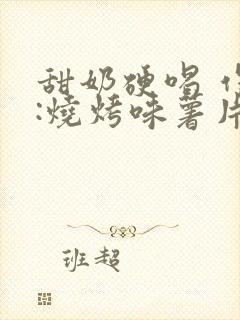 甜奶硬唱
:燒烤味薯片
班超